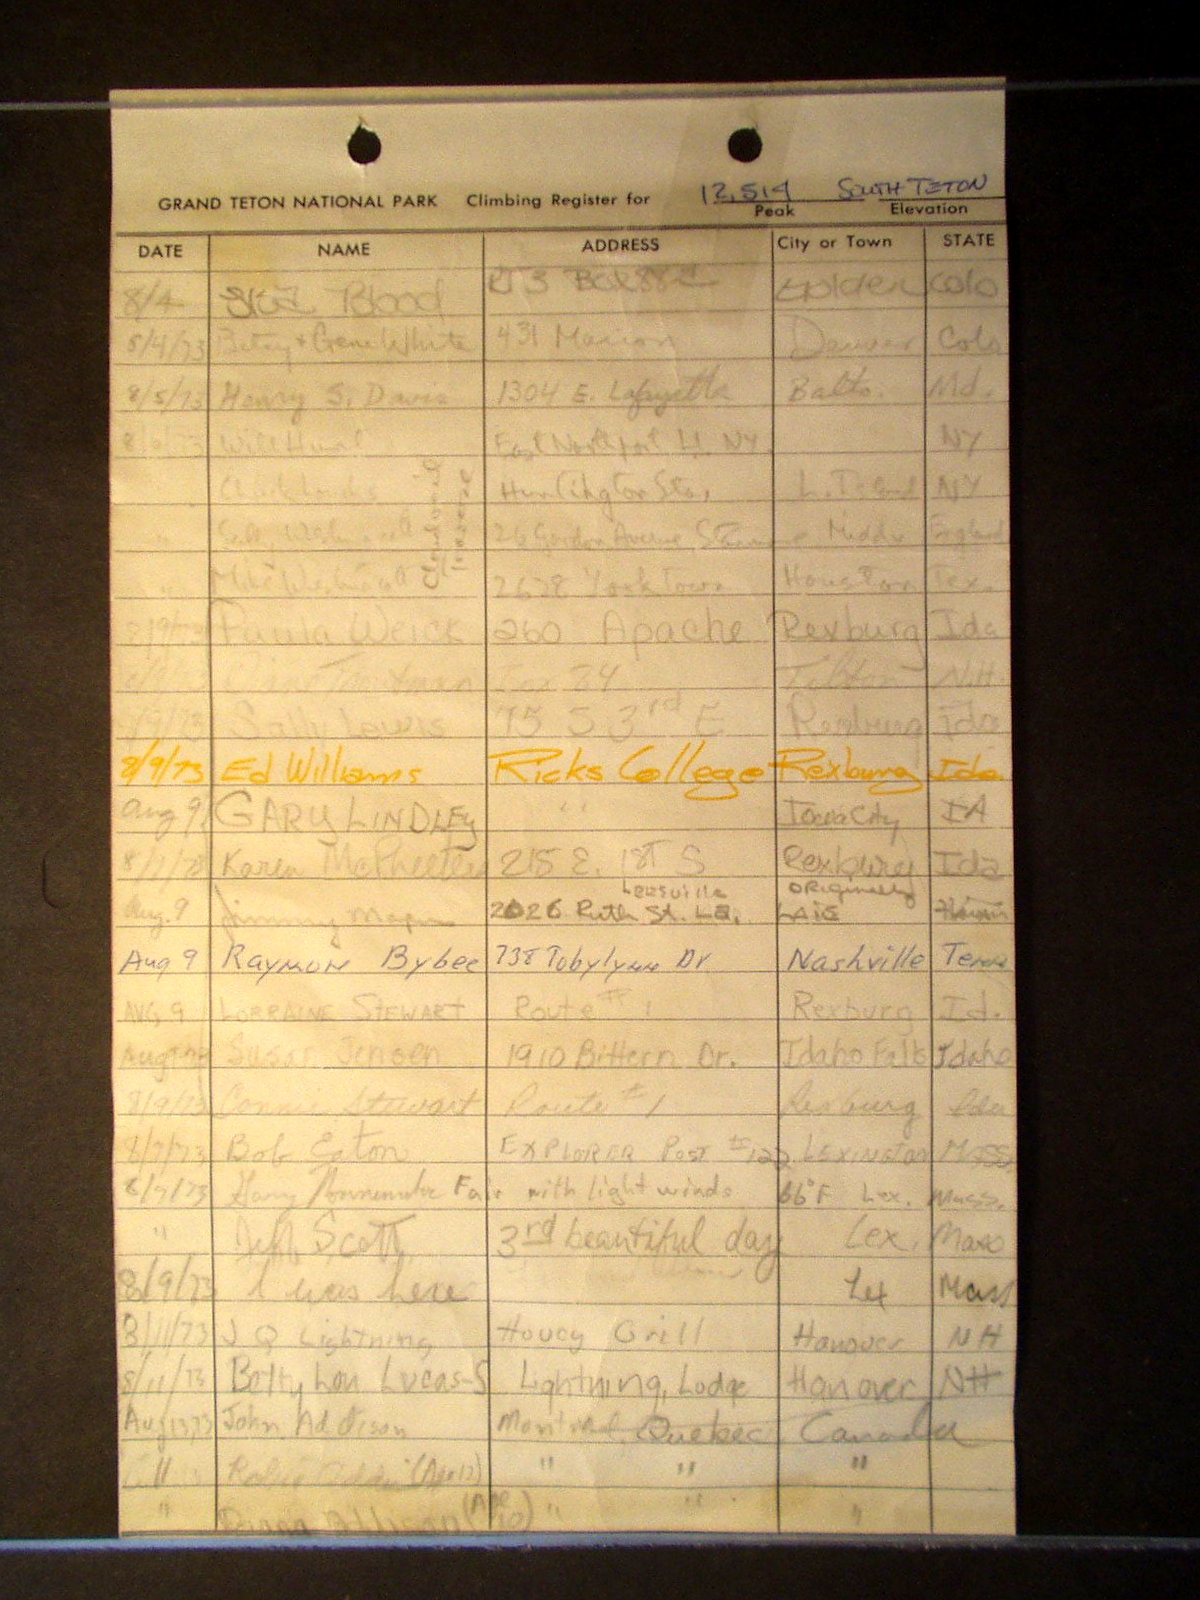 GRAND TETON NATIONAL PARK Climbing Register for 12,514 SOUTH TETON
Peak Elevation
DATE NAME ADDRESS City or Town STATE
8/4 Blood RT 3 Box Golden Colo
8/4/73 Betsy + Gene White 431 Marion Denver Colo
8/5/73 Henry S. Davis 1304 E. Lafayette Balto. Md.
Will Hunt East Northport NY NY
Huntington Sta. L. Island NY
26 Gordon Avenue England
" 2628 Yorktown Houston Tex.
8/9/73 Paula Weick 260 Apache Rexburg Ida
Box 34 Tilton N.H.
8/9/73 Sally Lewis 75 S 3rd E Rexburg Ida
8/9/73 Ed Williams Ricks College Rexburg Ida.
Aug 9, GARY LINDLEY " Iowa City IA
Karen 215 E. 1st S Rexburg Ida
Leesville originally
Aug. 9 Jimmy 2026 Ruth St. La.
Aug 9 RAYMON Bybee 738 Tobylynn Dr Nashville Tenn
AUG, 9 LORRAINE STEWART Route # 1 Rexburg Id.
Susan Jensen 1910 Bittern Dr. Idaho Falls Idaho
8/9/73 Connie Stewart Route # 1 Rexburg Ida
8/7/73 Bob Eaton EXPLORER POST # 122 LEXINGTON MASS
8/7/73 Fair with light winds 66°F Lex. Mass.
" Jeff Scott 3rd beautiful day Lex. Mass
8/9/73 I was here Lex Mass
8/11/73 J Q Lightning Hovey Grill Hanover NH
8/11/73 Betty Lou Lucas-S Lightning Lodge Hanover NH
Aug 13, 73 John Addison Montreal Quebec, Canada
" (Age 12) " " "
" (Age 10) " " "